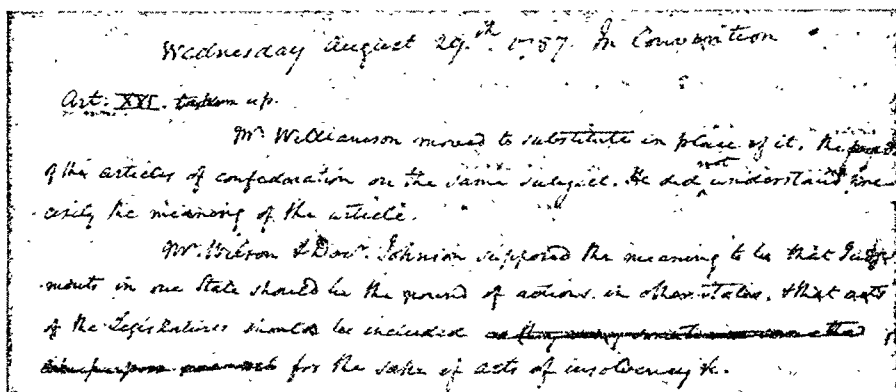 Wednesday August 29.th 1787. In Convention
Art: XVI. taken up.
Mr. Williamson moved to substitute in place of it, the
of the articles of confederation on the same subject. He did not understand
cisely the meaning of the article.
Mr. Wilson & Docr. Johnson supposed the meaning to be that Judg
ments in one State should be the ground of actions in other States, & that acts
of the Legislatures should be included
for the sake of acts of insolvency &c.